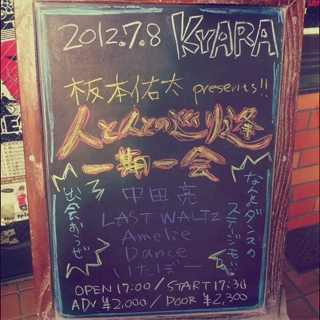 2012.7.8 KYARA
板本佑太 presents!!
人と人との巡り逢
一期一会
出会おうぜ
なんとダンスの
ステージも!
中田亮
LAST WALTZ
Amelie
Dance
いたぼー
OPEN 17:00 / START 17:30
ADV ¥2,000 / DOOR ¥2,300